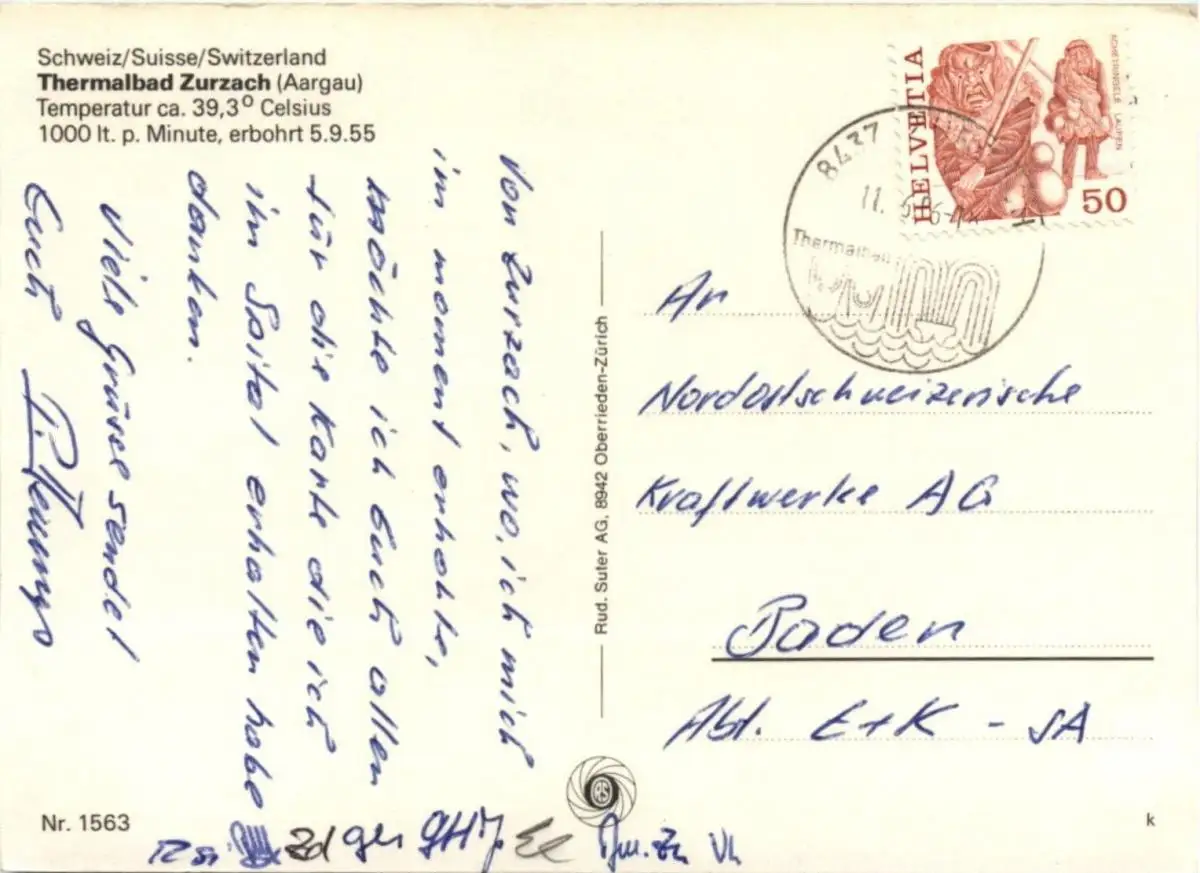 Schweiz/Suisse/Switzerland
Thermalbad Zurzach (Aargau)
Temperatur ca. 39,3° Celsius
1000 lt. p. Minute, erbohrt 5.9.55
Von Zurzach, wo, ich mich
im moment erhohle,
möchte ich Euch allen
für die Karte die ich
im Spital erhalten habe
danken.
Viele Grüsse sendet
Euch
Nr. 1563
Rud. Suter AG, 8942 Oberrieden-Zürich
HELVETIA
LAUFEN
50
8437
11.
Thermalbad
An
Nordostschweizerische
Kraftwerke AG
Baden
Abt. E+K - SA
k
Zd ger
Zn Vh